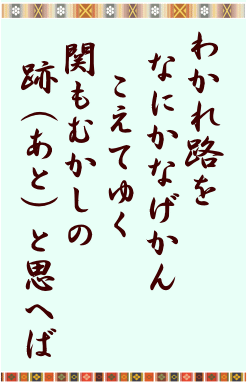 わかれ路を
なにかなげかん
こえてゆく
関もむかしの
跡（あと）と思へば